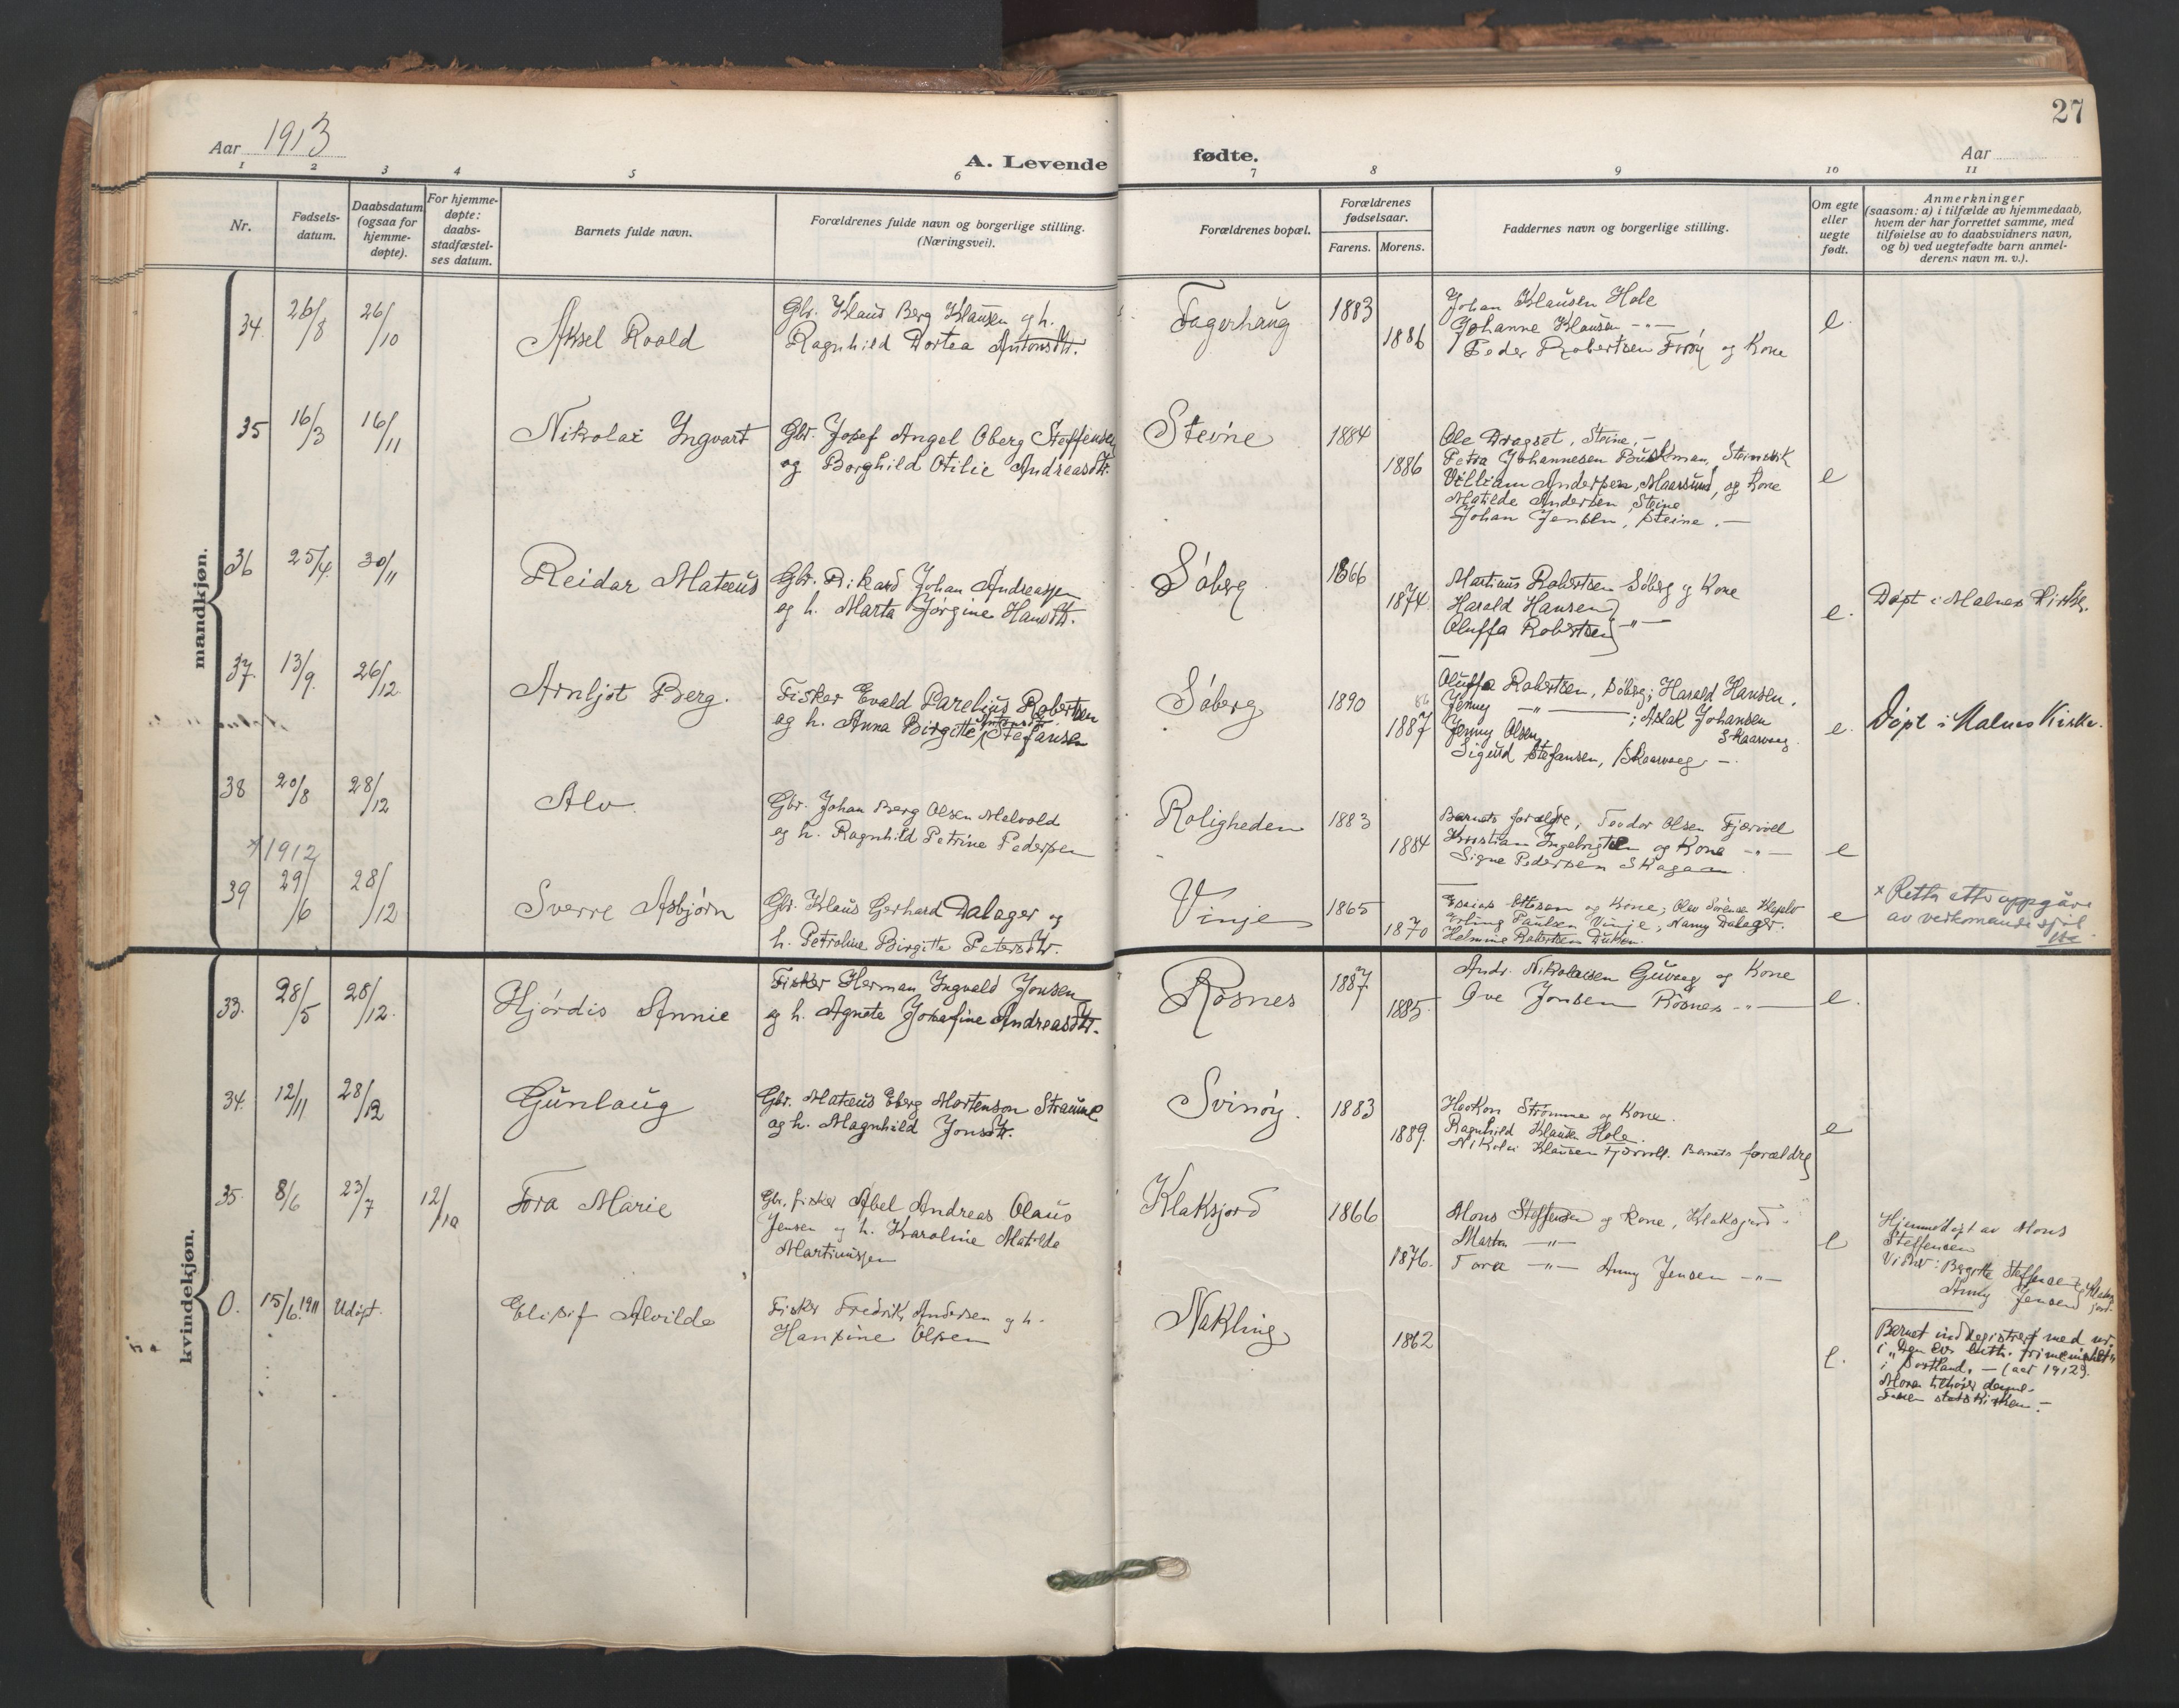 27
Aar 1913
A. Levende fødte.
Aar
1 2 3 4 5 6 7 8 9 10 11
Nr.
Fødsels-
datum.
Daabsdatum
(ogsaa for
hjemme-
døpte).
For hjemme-
døpte:
daabs-
stadfæstel-
ses datum.
Barnets fulde navn.
Forældrenes fulde navn og borgerlige stilling.
(Næringsvei).
Forældrenes bopæl.
Forældrenes
fødselsaar.
Farens. Morens.
Faddernes navn og borgerlige stilling.
Om egte
eller
uegte
født.
Anmerkninger
(saasom: a) i tilfælde av hjemmedaab,
hvem der har forrettet samme, med
tilføielse av to daabsvidners navn,
og b) ved uegtefødte barn anmel-
derens navn m. v.).
mandkjøn.
34. 26/8 26/10 Aksel Roald
Gbr. Klaus Berg Klausen og h.
Ragnhild Dortea Antonsdtr.
Fagerhaug 1883 1886
Johan Klausen Hole
Johanne Klausen -"-
Peder Robertsen Frøy og Kone
e.
35 16/3 16/11 Nikolai Ingvart
Gbr. Josef Angel Oberg Steffensen
og Borghild Otilie Andreasdtr.
Steine 1884 1886
Ole Dragset, Steine, -
Petra Johannesen Buskman, Steinsvik
Villiam Andersen, Maarsund, og Kone
Matilde Andersen, Steine
Johan Jensen, Steine. -
e
36 25/4 30/11 Reidar Mateus
Gbr. Rikard Johan Andreassen
og h. Marta Jørgine Hansdtr.
Søberg 1866 1874
Martinus Robertsen Søberg og Kone
Harald Hansen
Oluffa Robertsen -"-
e.
Døpt i Malnes Kirke.
37. 13/9. 26/12. Arnljot Berg.
Fisker Evald Parelius Robertsen
og h. Anna Birgitte Antonsdtr. Stefansen
Søberg 1890 86 1887
Oluffa Robertsen, Søberg; Harald Hansen.
Jenny -"- ; Aslak Johansen
Jenny Olsen, Skaarvaag.
Sigurd Stefansen, Skaarvaag. -
e.
Døpt i Malnes Kirke.
38 20/8 28/12 Alv.
Gbr. Johan Berg Olsen Melvold
og h. Ragnhild Petrine Pedersen
Roligheden 1883 1884
Barnets forældre, Teodor Olsen Fjærvoll
Kristian Ingebrigtsen og Kone -"-
Signe Pedersen Skagen.
e
x 1912
39 29/6 28/12 Sverre Asbjørn
Gbr. Klaus Gerhard Dalager og
h. Petroline Birgitte Petersdtr.
Vinje 1865 1870
Esaias Ottesen og Kone; Olav Sørensen
Erling Paulsen Vinje, Nanny Dalager.
Helmine Robertsen
e
x Retta etter oppgåve
av vedkomande sjøl.
kvindekjøn.
33. 28/5 28/12. Hjørdis Annie
Fisker Herman Ingvald Jonsen
og h. Agnete Josefine Andreasdtr.
Røsnes 1887 1885.
Andr. Nikolaisen Guvaag og Kone
Ove Jonsen Røsnes -"-
e.
34. 12/11 28/12 Gunlaug
Gbr. Mateus Eberg Mortenson Straume
og h. Magnhild Jonsdtr.
Svinøy. 1883 1889.
Haakon Strømme og Kone.
Ragnhild Klausen Hole.
Nikolai Klausen Fjærvoll. Barnets forældre
e
35. 8/6 23/7 12/10 Tora Marie
Gbr. fisker Abel Andreas Olaus
Jensen og h. Karoline Matilde
Martinussen
Klaksjord 1866 1876.
Mons Steffensen og Kone, Klaksjord.
Martin -"-
Tora -"- Anny Jensen -"-
e
Hjemmedøpt av Mons
Steffensen
Vidner: Birgitte Steffensen
Anny Jensen
O. 15/6.1911 Udøpt. Elisif Alvilde
Fisker Fredrik Andersen og h.
Hansine Olsen
Nakling 1862
e.
Barnet indregistrert med nr.
i "Den ev. luth. frimenighet"
i Sortland. - (aar 1912).
Moren tilhører denne.
Faren statskirken. -